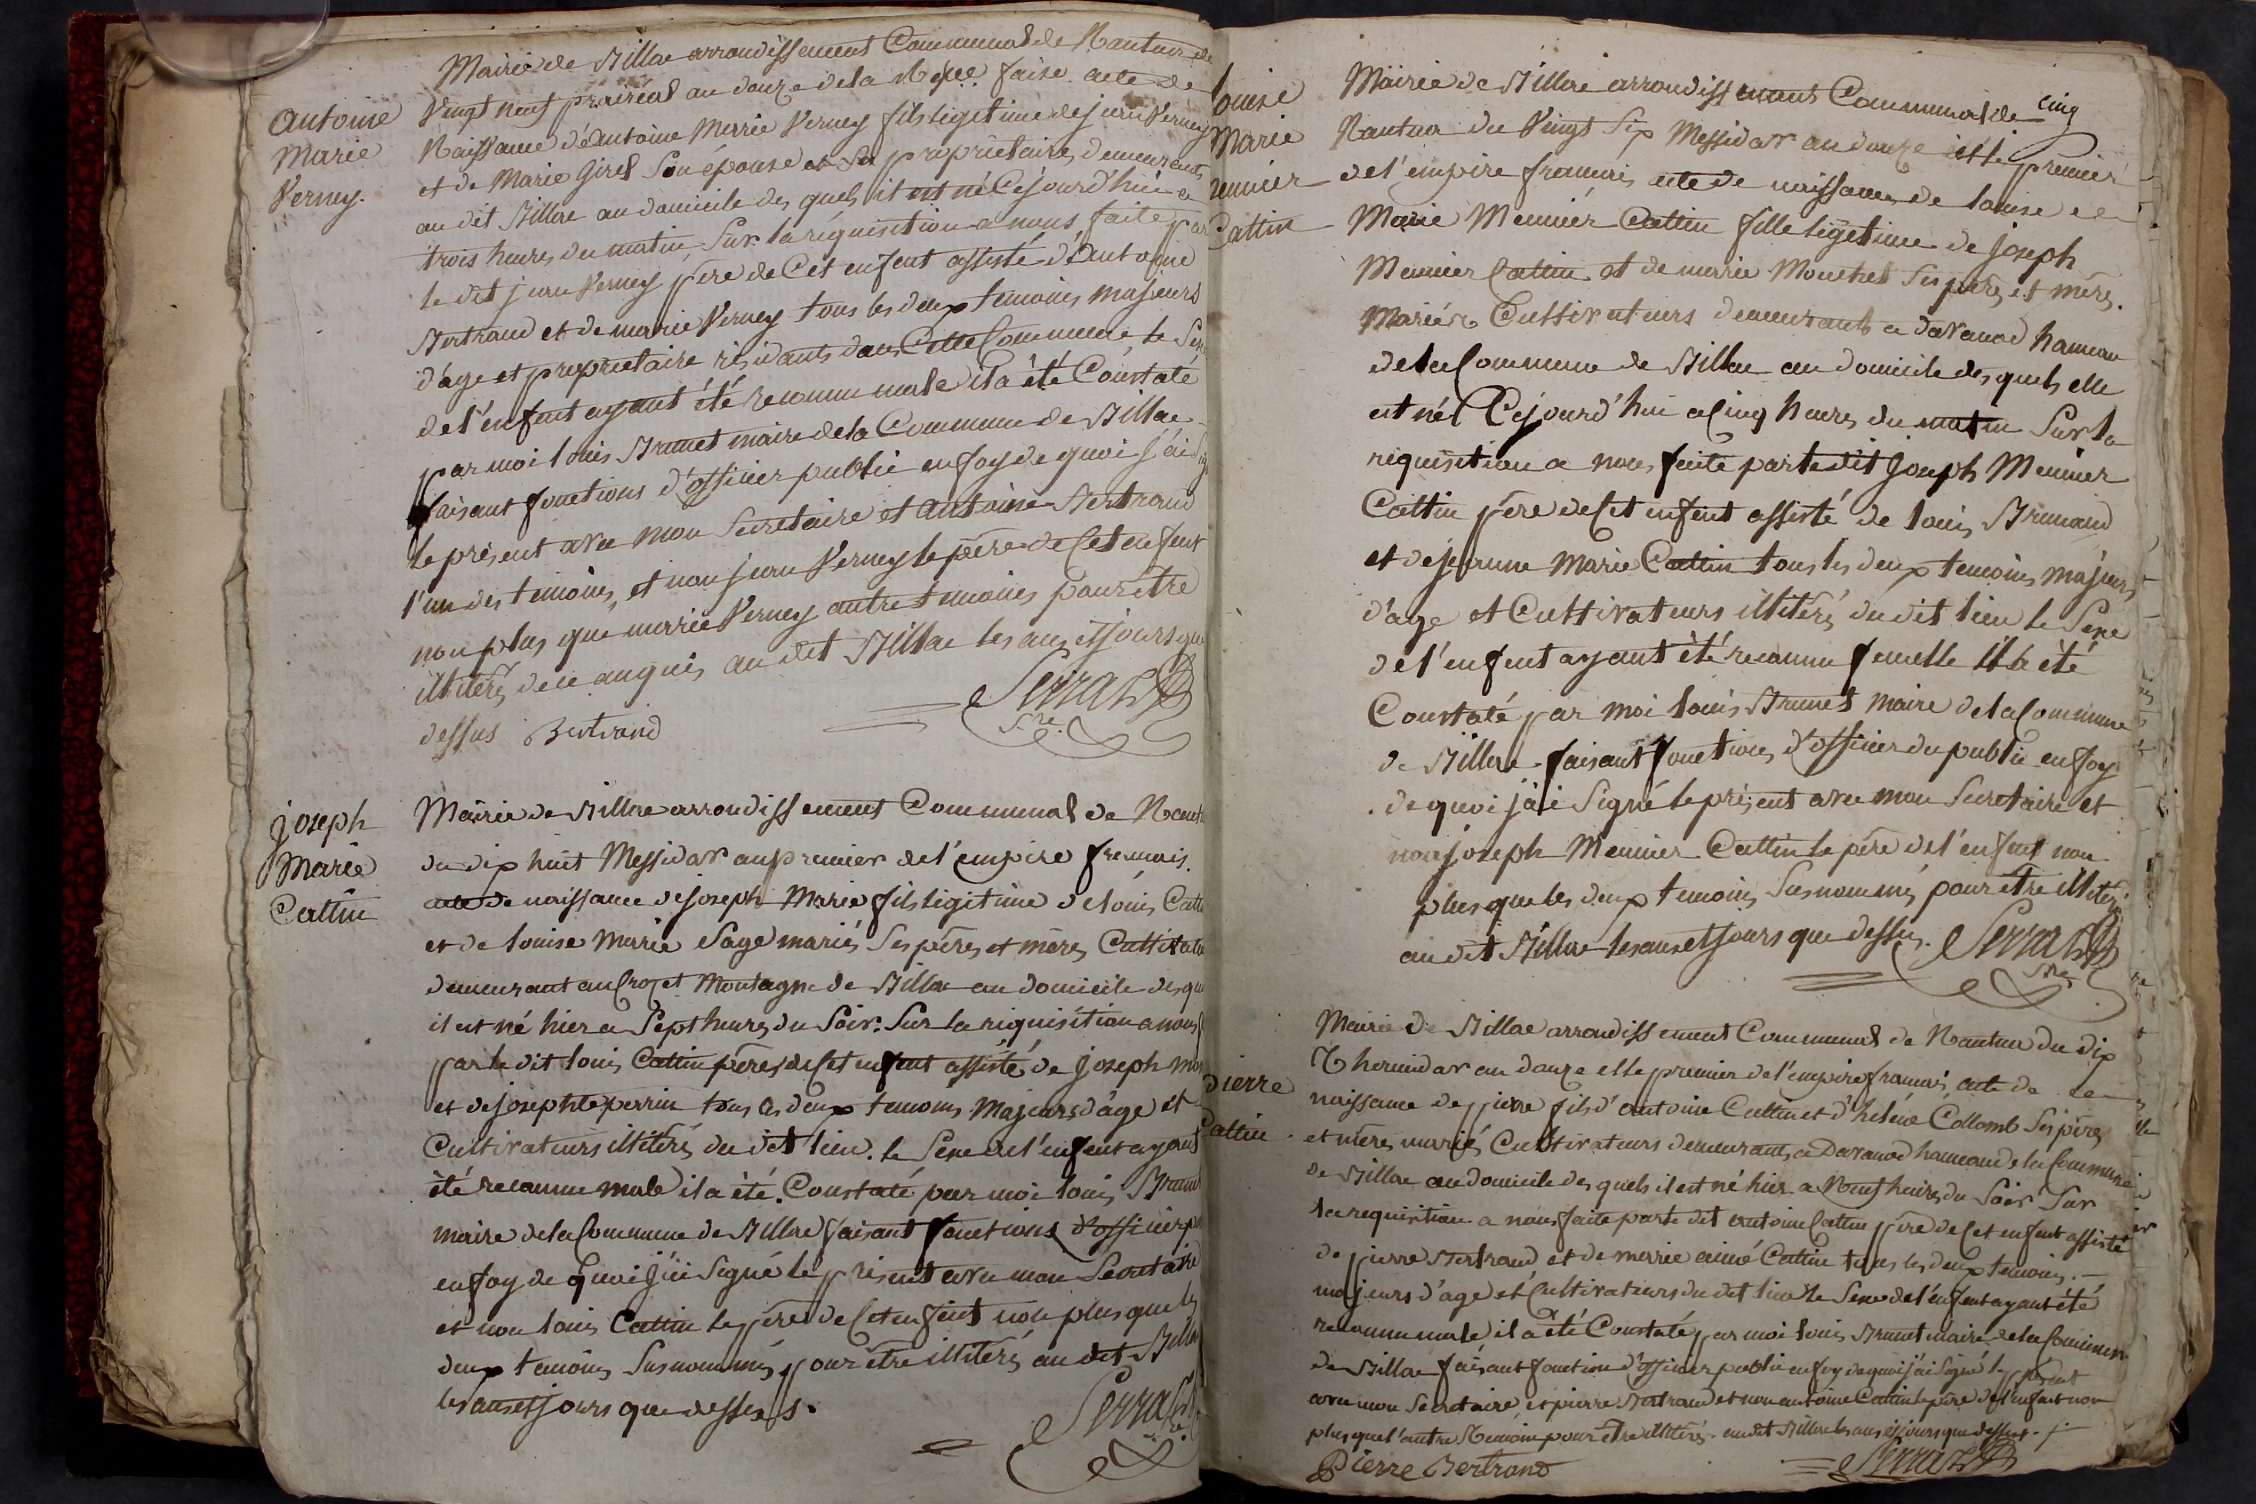 Antoine
Marie
Verney.
Mairie de Billae arrondissement Communal de Nantua du
Vingt neuf prairéal an douze de la Rép.que faise. acte de
Naissance d'Antoine Marie Verney fils légitime de jean Verney
et de Marie Girel Son épouse propriétaires demeurants
au dit Billae au domicile des quels il est né Cejourd'hui a
trois heures du matin, Sur la réquisition a nous faite par
le dit jean Verney père de Cet enfent assisté d'Antoine
Bertrand et de marie Verney tous les deux temoins majeurs
d'age et proprietaire résidants dans Cette Commune, le Sexe
de l'enfent ayant été reconnu male il a été Constaté
par moi louis Brunet maire de la Commune de Billae
faisant fonctions d'officier public en foy de quoi j'ai
le présent avec mon Secretaire et Antoine Bertrand
l'un des temoins, et non jean Verney le père de Cet enfent
non plus que marie Verney autre temoins pour être
illitérés de ce anquis au dit Billae les ans et jours que
dessus Bertrand
Serra
S.re
joseph
Marie
Cattin
Mairie de Billae arrondissement Communal de Nantu
du dix huit Messidor an premier de l'empire francais.
acte de naissance de joseph Marie fils légitime de louis Catti
et de louise Marie Sage mariés Ses pères et mères Cultivate
demeurant au Crozet Montagne de Billae au domicile des que
il est né hier a Sept heures du Soir. Sur la réquisition a nous f
par le dit louis Cattin père de Cet enfent assisté de joseph
et de joseph perrin tous les deux temoins Majeurs d'âge et
Cultivateurs illitérés du dit lieu. le Sexe de l'enfent ayant
été reconnu male il a été Constaté par moi louis Brun
maire de la Commune de Billae faisant fonctions d'officier p
en foy de quoi j'ai Signé le présent avec mon Secretaire
et non louis Cattin le père de Cet enfent non plus que les
deux temoins Susnommés pour être illitérés au dit Billa
les ans et jours que dessus.
Serra
S.re
cinq
louise
Marie
Meunier
Cattin
Mairie de Billae arrondissement Communal de
Nantua du Vingt Six Messidor an douze et le premier
de l'empire francais acte de naissance de louise
Marie Meunier Cattin fille légitime de joseph
Meunier Cattin et de marie Mouchet Ses pères et mères.
Mariés Cultivateurs demeurants a davanod hameau
de la Commune de Billae au domicile des quels elle
est née Cejourd'hui a Cinq heures du matin Sur la
réquisition a nous faite par le dit joseph Meunier
Cattin père de Cet enfent assisté de louis Brunand
et de jeanne Marie Cattin tous les deux temoins majeurs
d'âge et Cultivateurs illitérés du dit lieu le Sexe
de l'enfent ayant été reconnu femelle il a été
Constaté par moi louis Brunet maire de la Commune
de Billae faisant fonctions d'officier du public en foy
de quoi j'ai Signé le présent avec mon Secretaire et
non joseph Meunier Cattin le père de l'enfent non
plus que les deux temoins Susnommés pour être illitérés
au dit Billae les ans et jours que dessus. Serra
S.re
Pierre
Cattin.
Mairie de Billae arrondissement Communal de Nantua du dix
Thermidor an douze et le premier de l'empire francais, acte de
naissance de pierre fils d'antoine Cattin et d'heléne Collomb Ses pères
et mères mariés Cultivateurs demeurants a Davanod hameau de la Commune
de Billae au domicile des quels il est né hier a Neuf heures du Soir Sur
la requisition a nous faite par le dit antoine Cattin père de Cet enfent assisté
de pierre Bertrand et de marie aimé Cattin tous les deux temoins.
majeurs d'age et Cultivateurs du dit lieu le Sexe de l'enfent ayant été
reconnu male il a été Constaté par moi louis Brunet maire de la Commune
de Billae faisant fonction d'officier public en foy de quoi j'ai Signé le présent
avec mon Secretaire et pierre Bertrand et non antoine Cattin le père de l'enfent non
plus que l'autre temoin pour être illitérés. au dit Billae les ans et jours que dessus.
Pierre Bertrand
Serra